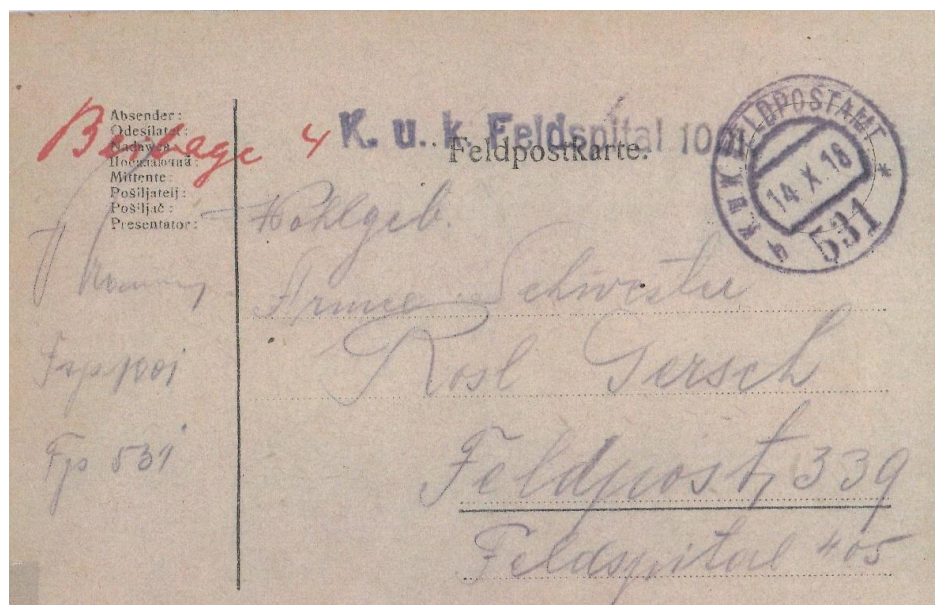 Absender:
Odesílatel:
Nadawca:
Посилаючий:
Mittente:
Pošiljatelj:
Pošiljač:
Presentator:
Beilage 4
K. u. k. Feldspital 1001
Feldpostkarte.
K.u.K. FELDPOSTAMT *
14.X.18
b 531
Wohlgeb.
Armee Schwester
Rosl Gersch
Feldpost, 339
Feldspital 405
Fsp 1001
Fp 531